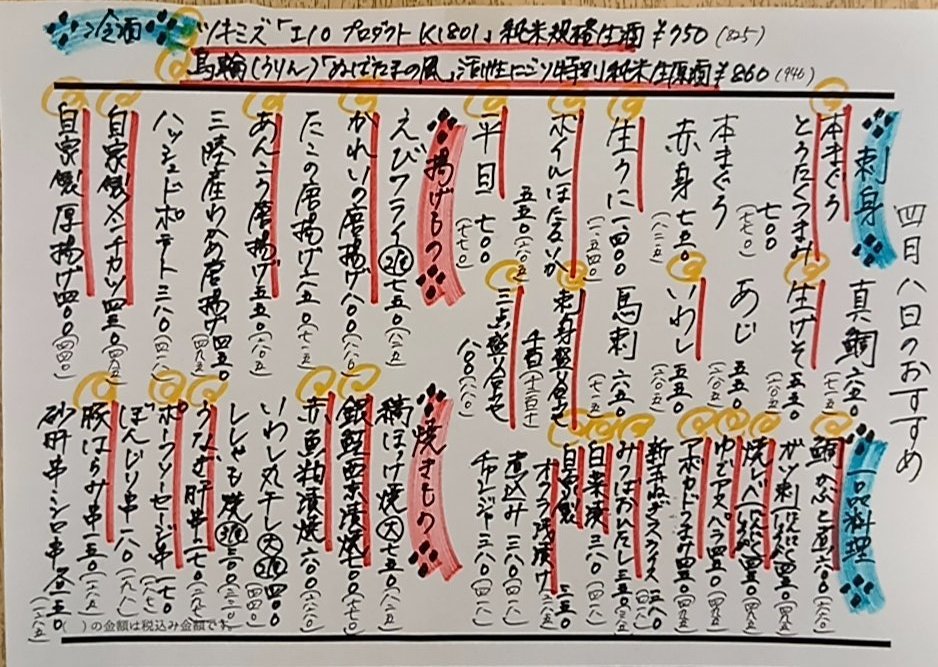 四月八日のおすすめ
冷酒
ツキミズ「エ10 プロダクト K1801」純米 生酒 ¥750 (825)
鳥輪(うりん)「ぬばたまの風」活性にごり特別純米生原酒 ¥860 (946)
刺身
本まぐろ
とろたくつまみ 七〇〇 (七七〇)
本まぐろ
赤身 七五〇 (八二五)
生うに 一、四〇〇 (一、五四〇)
ボイルほたるいか 五五〇 (六〇五)
平目 七〇〇 (七七〇)
真鯛 六五〇 (七一五)
生げそ 五五〇 (六〇五)
あじ 五五〇 (六〇五)
いわし 五五〇 (六〇五)
馬刺 六五〇 (七一五)
刺身盛り合せ
三点盛り合せ 八〇〇 (八八〇)
一品料理
鯛かぶと煮 六〇〇 (六六〇)
ガツ刺 四五〇 (四九五)
焼レバー 四五〇 (四九五)
ゆでアスパラ 四五〇 (四九五)
アボカドつまみ 四五〇 (四九五)
新玉ねぎスライス 三八〇 (四一八)
みつばおひたし 三五〇 (三八五)
白菜漬 三八〇 (四一八)
自家製
オクラ浅漬け 三五〇 (三八五)
煮込み 三八〇 (四一八)
チャンジャ 三八〇 (四一八)
揚げもの
えびフライ 2尾 七五〇 (八二五)
かれいの唐揚げ 八〇〇 (八八〇)
たこの唐揚げ 六五〇 (七一五)
あんこう唐揚げ 五五〇 (六〇五)
三陸産わかめ唐揚げ 四五〇 (四九五)
ハッシュドポテト 三八〇 (四一八)
自家製メンチカツ 四五〇 (四九五)
自家製厚揚げ 四〇〇 (四四〇)
焼きもの
縞ほっけ焼 大 七五〇 (八二五)
銀鮭西京漬焼 七〇〇 (七七〇)
赤魚粕漬焼 六〇〇 (六六〇)
いわし丸干し 大 2尾 四〇〇 (四四〇)
ししゃも焼 3尾 三〇〇 (三三〇)
うなぎ肝串 二七〇 (二九七)
ポークソーセージ串 一七〇 (一八七)
ぼんじり串 一八〇 (一九八)
豚はらみ串 一五〇 (一六五)
砂肝串・シロ串 各一五〇 (一六五)
( )の金額は税込み金額です。